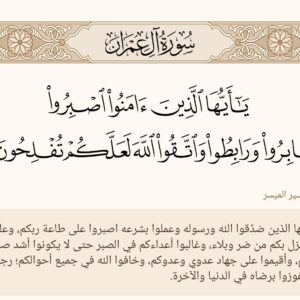 سُورَةُ آلِ عِمْرَانَ
يَٰٓأَيُّهَا ٱلَّذِينَ ءَامَنُوا۟ ٱصْبِرُوا۟
صَابِرُوا۟ وَرَابِطُوا۟ وَٱتَّقُوا۟ ٱللَّهَ لَعَلَّكُمْ تُفْلِحُونَ
الميسر
الذين صدَّقوا الله ورسوله وعملوا بشرعه اصبروا على طاعة ربكم،
بكم من ضر وبلاء، وغالبوا أعداءكم في الصبر حتى لا يكونوا أشد
وأقيموا على جهاد عدوي وعدوكم، وخافوا الله في جميع أحوالكم؛
برضاه في الدنيا والآخرة.